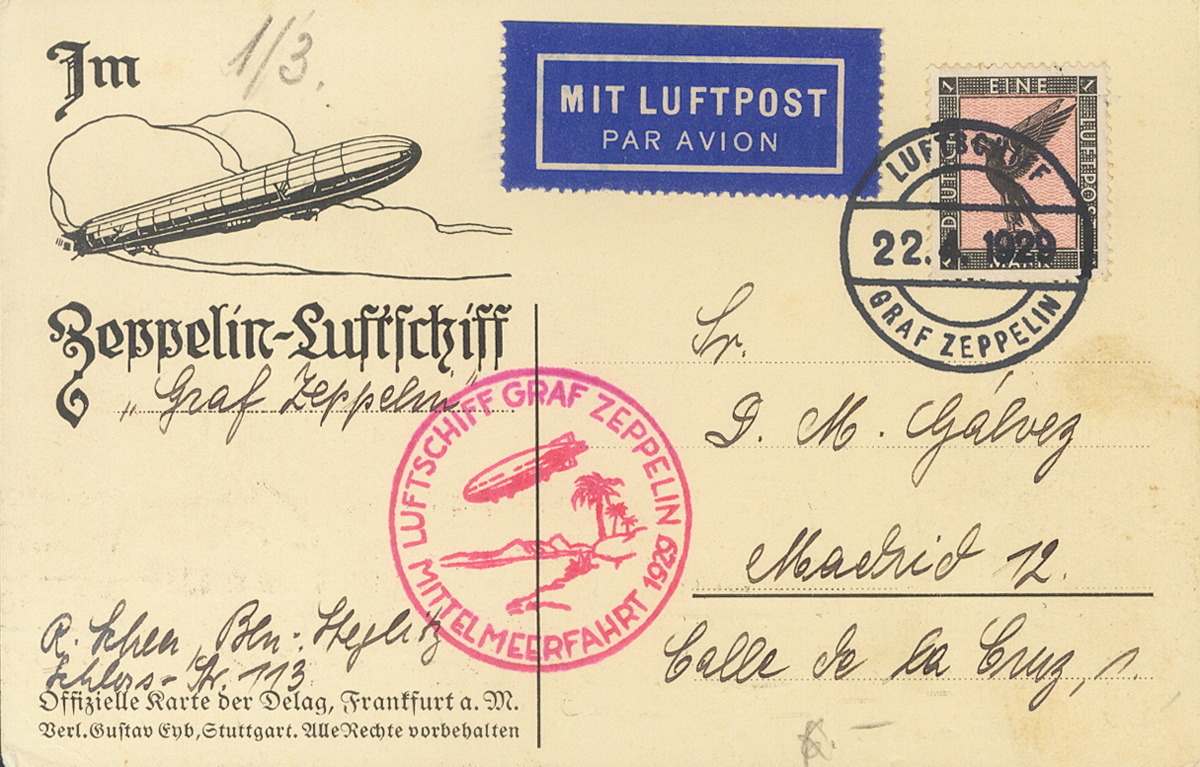 Im
1/3.
MIT LUFTPOST
PAR AVION
EINE
1
1
LUFTPOST
DEUTSCHE
MARK
LUFTSCHIFF
22.4.1929
GRAF ZEPPELIN
Zeppelin-Luftschiff
„Graf Zeppelin"
LUFTSCHIFF GRAF ZEPPELIN
MITTELMEERFAHRT 1929
Sr.
D. M. Gálvez
Madrid 12.
Calle de la Cruz, 1.
R. Bln-Steglitz
Schloss-Str. 113
Offizielle Karte der Delag, Frankfurt a. M.
Verl. Gustav Eyb, Stuttgart. Alle Rechte vorbehalten